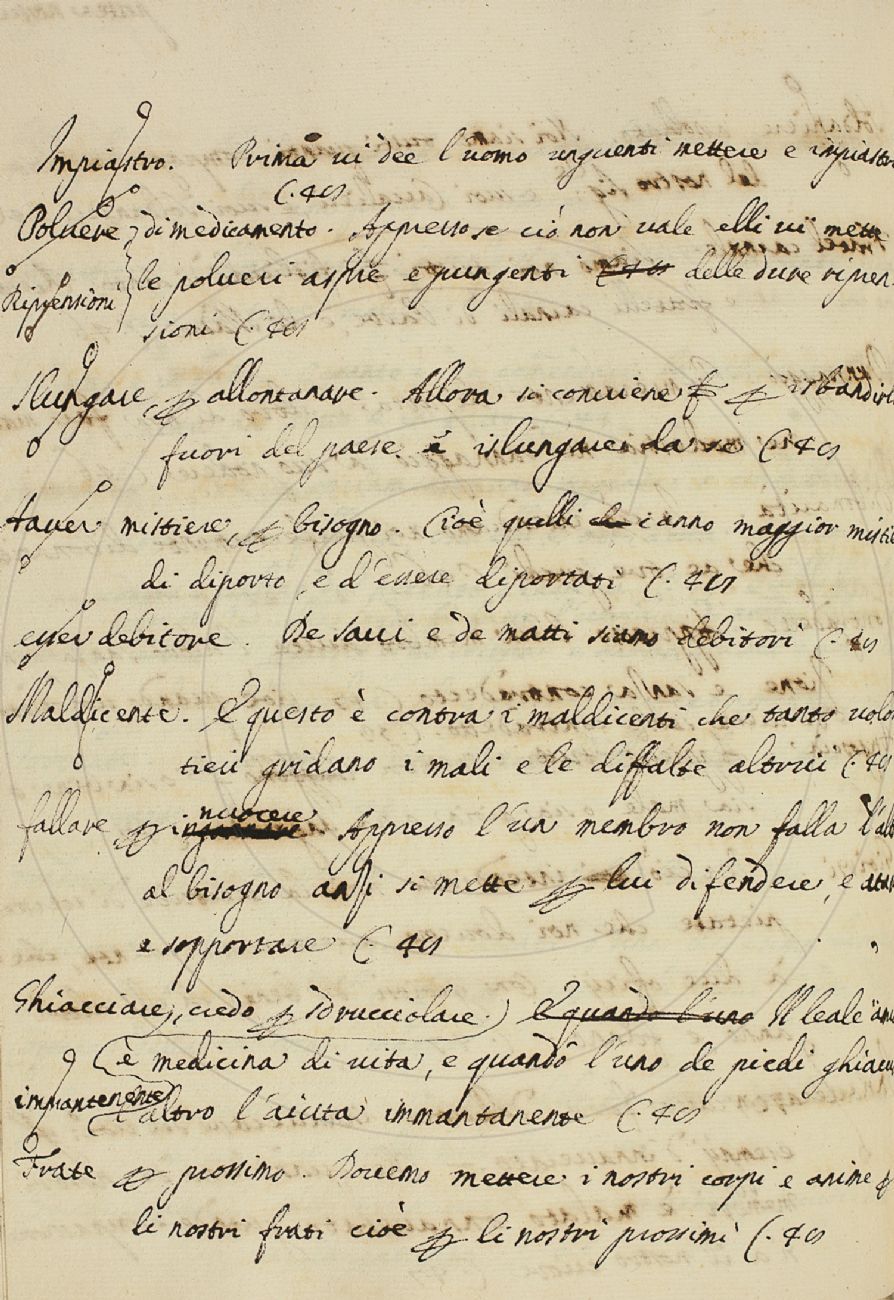 Impiastro. Prima vi dee l'uomo unguenti mettere e impiastri
C. 4cs
Polvere di medicamento. Appresso se ciò non vale elli vi mette
le polveri aspre e pungenti delle dure ripren
Riprensioni
sioni C. 4cs
Slungare, p allontanare. Allora si conviene p isbandirlo
fuori del paese. e islungare da se C. 4cs
Haver mistiere, p bisogno. Cioè quelli ch' anno maggior mistie
di diporto, e d'essere diportati C. 4cs
esser debitore. De savi e de matti siamo debitori C. 4cs
Maldicente. E questo è contra i maldicenti che tanto volon
tieri gridano i mali e le diffalte altrui C. 4cs
nuocere
fallare p ingannare Appresso l'un membro non falla l'al
al bisogno anzi si mette p lui difendere, e
e sopportare C. 4cs
Ghiacciare, credo p sdrucciolare.) E quando l'uno Il leale
è medicina di vita, e quando l'uno de piedi ghiacc
immantenente
l'altro l'aiuta immantanente C. 4cs
Frate p prossimo. Dovemo mettere i nostri corpi e anime p
li nostri frati cioè p li nostri prossimi C. 4cs